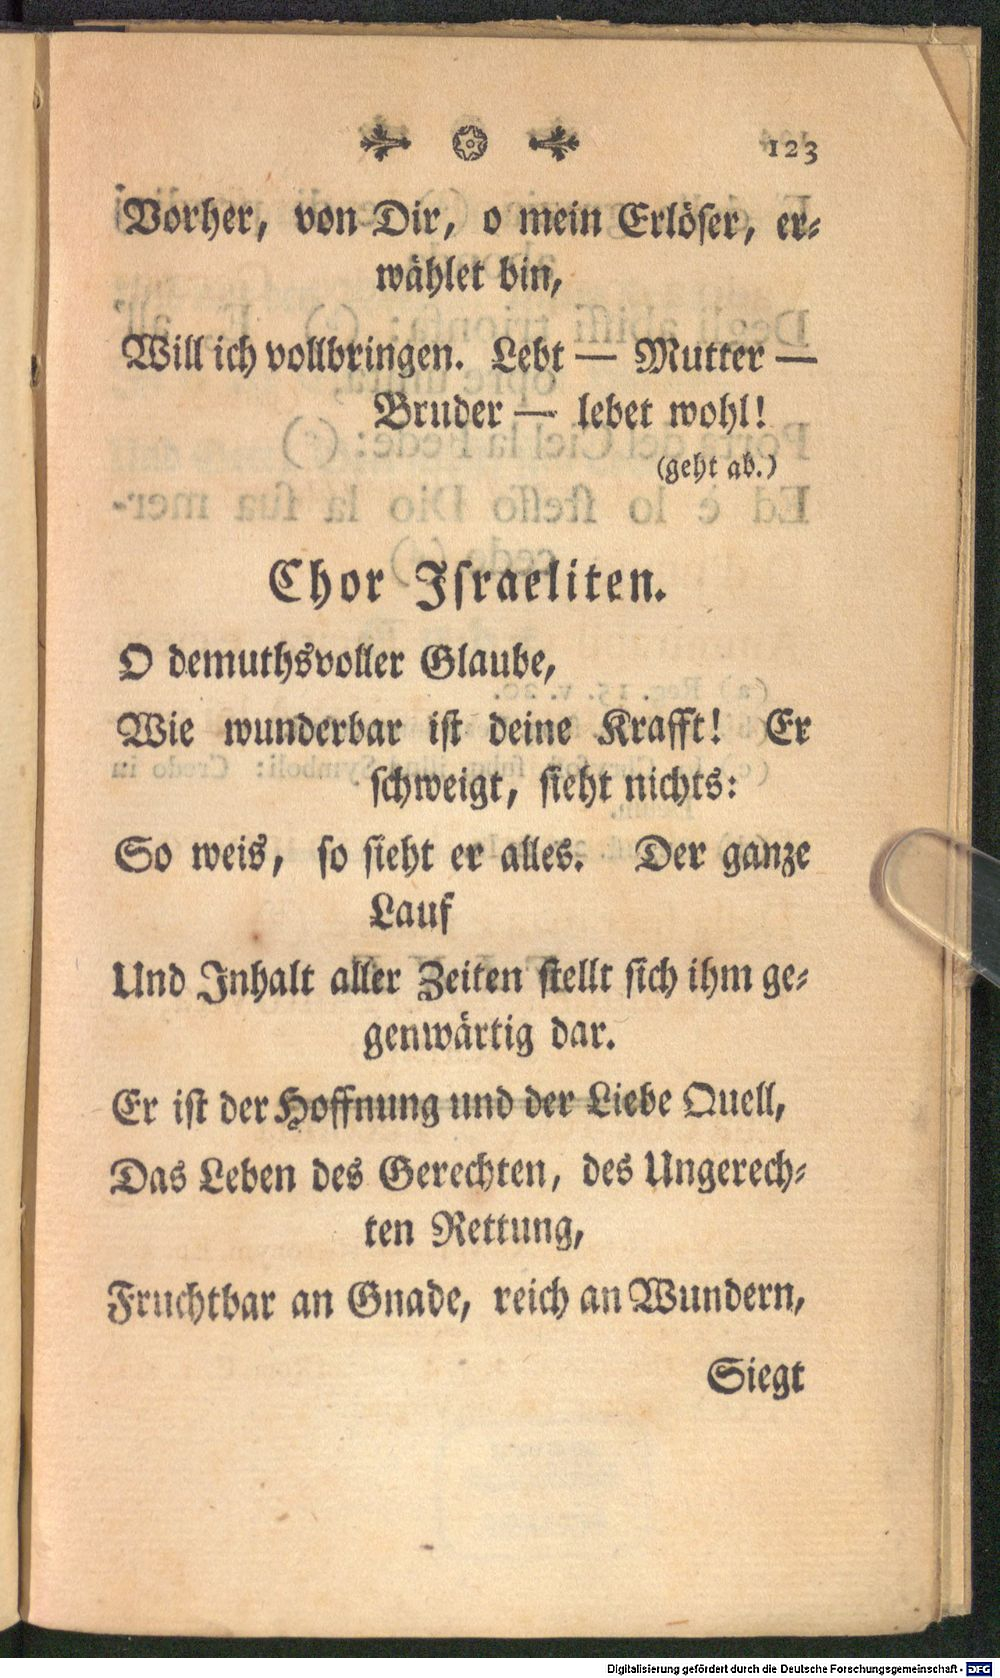 123
Vorher, von Dir, o mein Erlöſer, er⸗
wählet bin,
Will ich vollbringen. Lebt — Mutter —
Bruder — lebet wohl!
(geht ab.)
Chor Iſraeliten.
O demuthsvoller Glaube,
Wie wunderbar iſt deine Krafft! Er
ſchweigt, ſieht nichts:
So weis, ſo ſieht er alles. Der ganze
Lauf
Und Inhalt aller Zeiten ſtellt ſich ihm ge⸗
genwärtig dar.
Er iſt der Hoffnung und der Liebe Quell,
Das Leben des Gerechten, des Ungerech⸗
ten Rettung,
Fruchtbar an Gnade, reich an Wundern,
Siegt
Digitalisierung gefördert durch die Deutsche Forschungsgemeinschaft - DFG